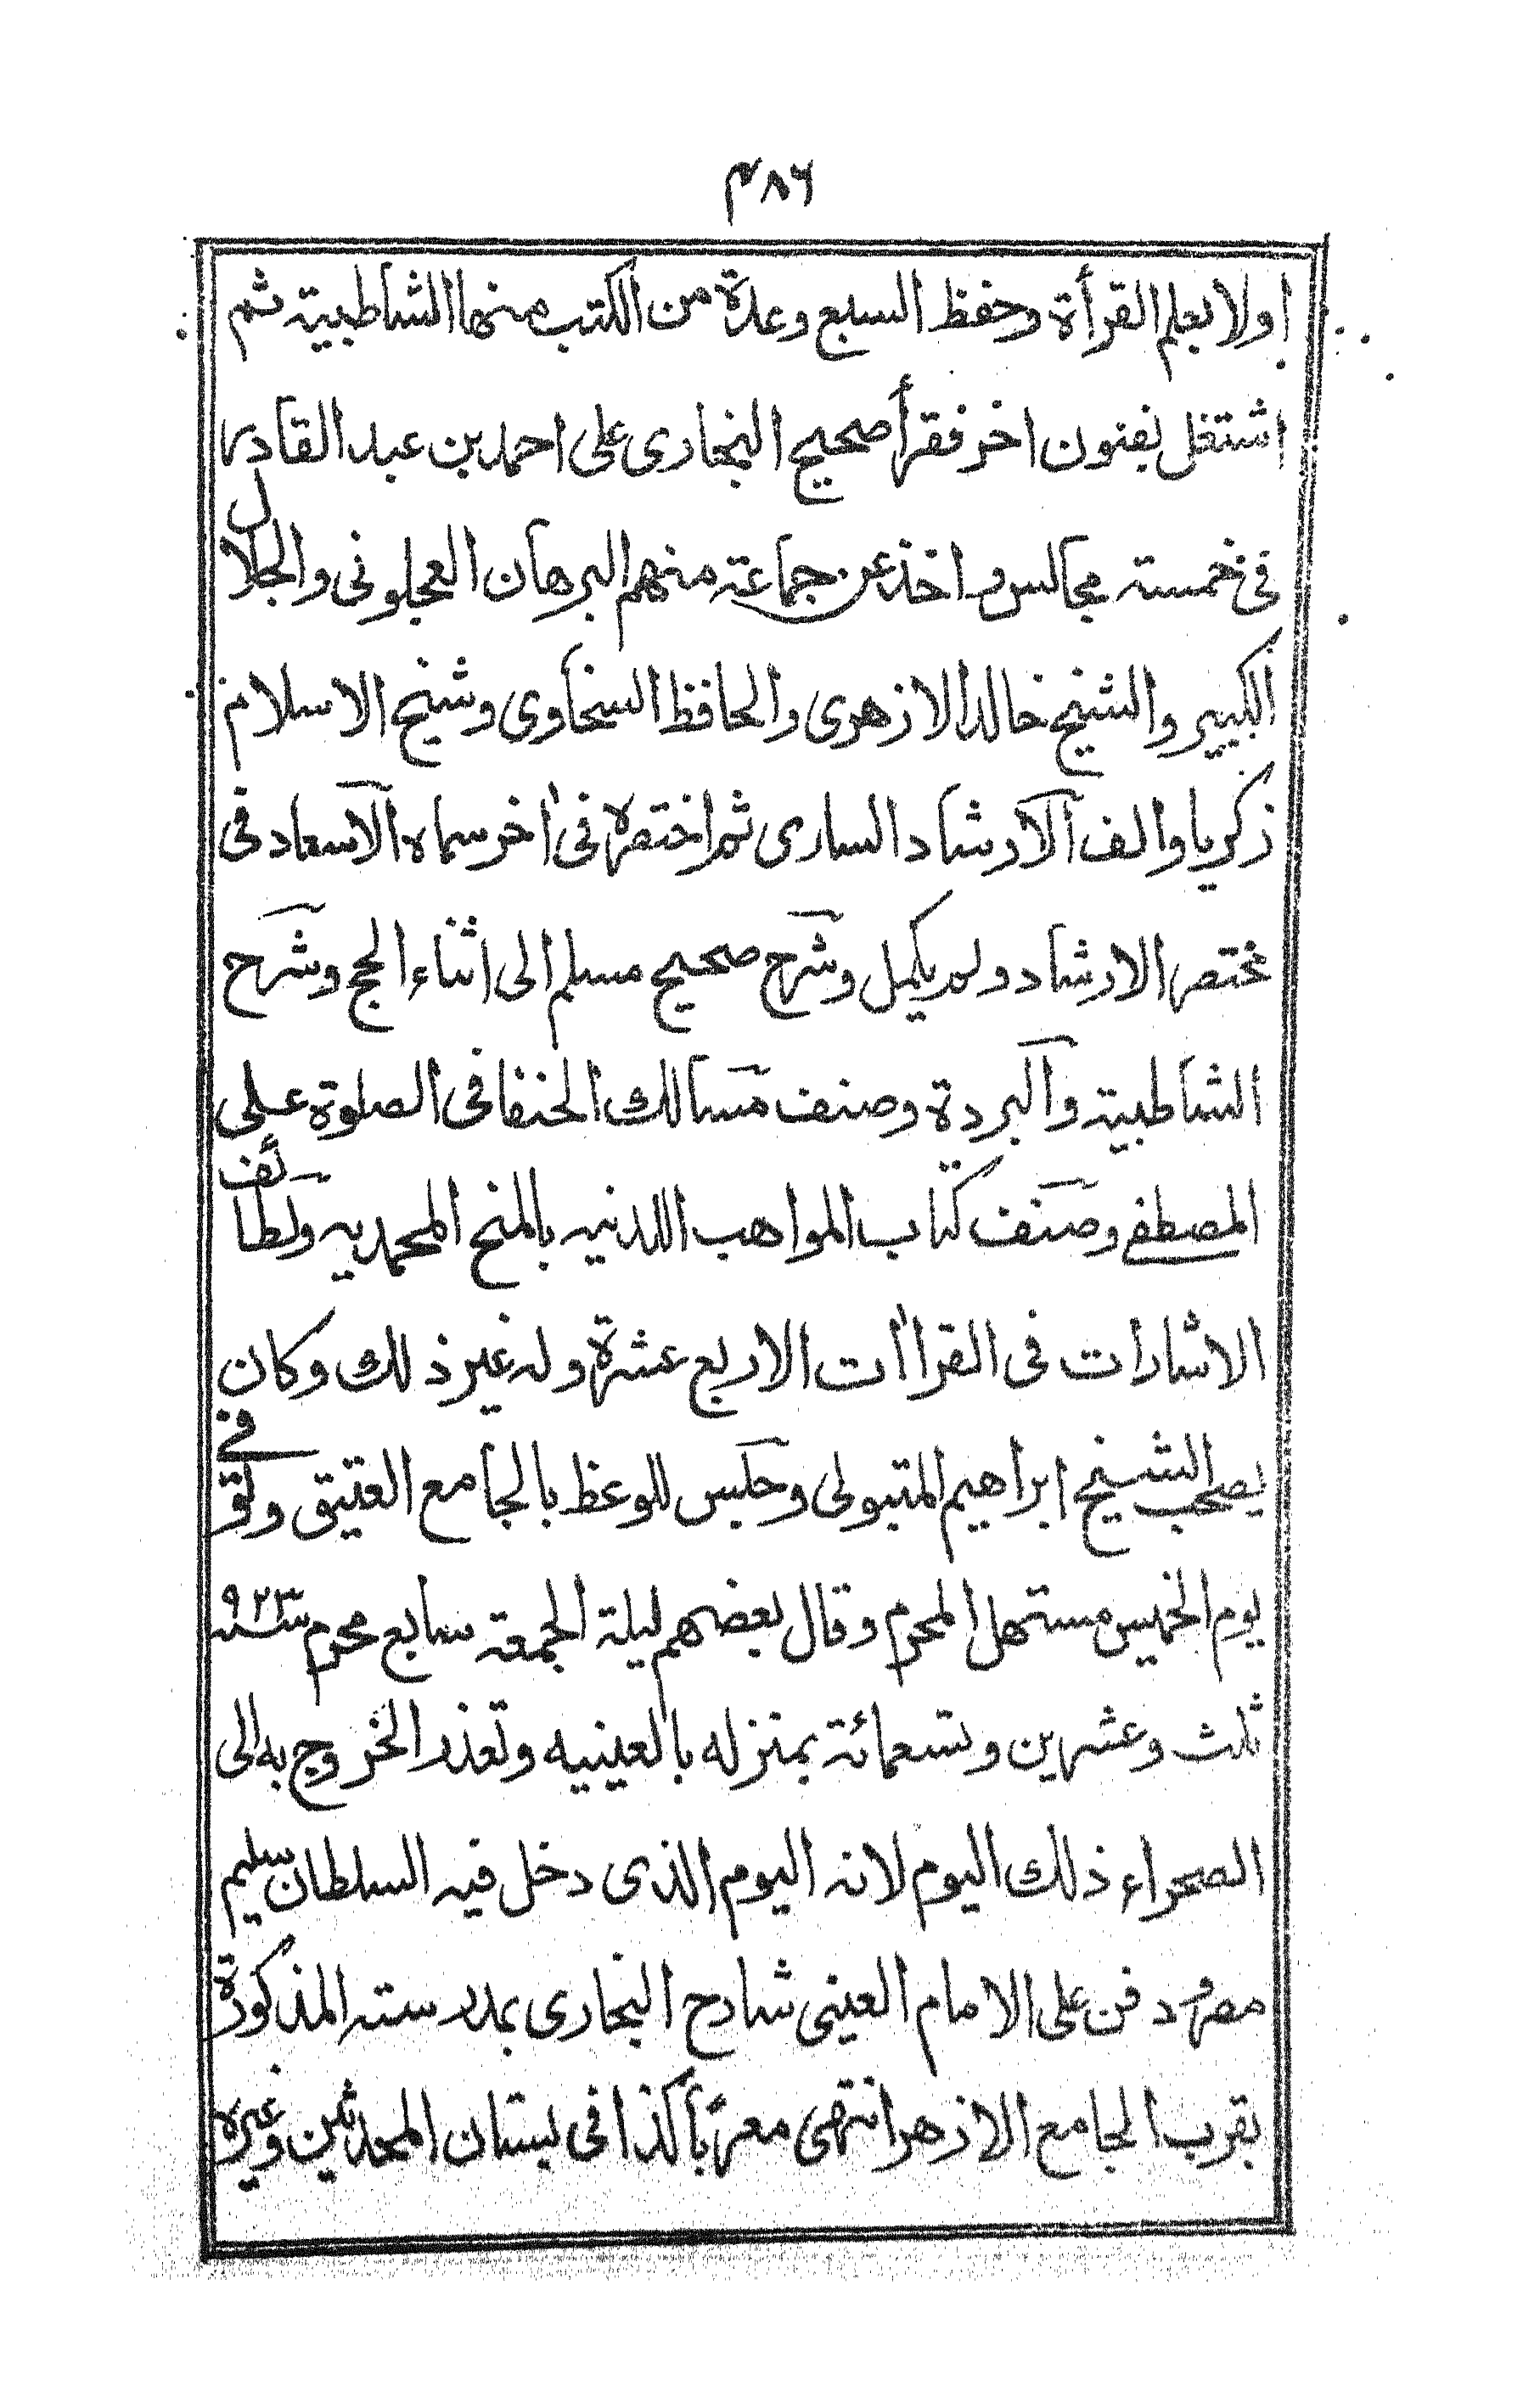 ٤٨٦
اولا بعلم القرأة وحفظ السبع وعدة من الكتب منها الشاطبية ثم
اشتغل بفنون اخر فقرأ صحيح البخارى على احمد بن عبد القادر
فى خمسته مجالس واخذ عن جماعته منهم البرهان العجلونى والجلال
الكبير والشيخ خالد الازهرى والحافظ السخاوى وشيخ الاسلام
زكريا والف الارشاد السارى ثم اختصره فى اخر سماه الاسعاد فى
مختصر الارشاد ولم يكمل وشرح صحيح مسلم الى اثناء الحج وشرح
الشاطبية والبردة وصنف مسالك الحنفا فى الصلوة على
المصطفى وصنف كتاب المواهب اللدنيه بالمنح المحمديه ولطائف
الاشارات فى القراأت الاربع عشرة وله غير ذلك وكان
يصحب الشيخ ابراهيم المتبولى وجلس للوعظ بالجامع العتيق وتوفى
يوم الخميس مستهل المحرم وقال بعضهم ليلة الجمعة سابع محرم سنة ٩٢٣
ثلث وعشرين وتسعمائة بمنزله بالعينيه وتعذر الخروج به الى
الصحراء ذلك اليوم لانه اليوم الذى دخل فيه السلطان سليم
مصر ودفن على الامام العينى شارح البخارى بمدرسته المذكورة
بقرب الجامع الازهر انتهى معربأ كذا فى بستان المحدثين وغيره